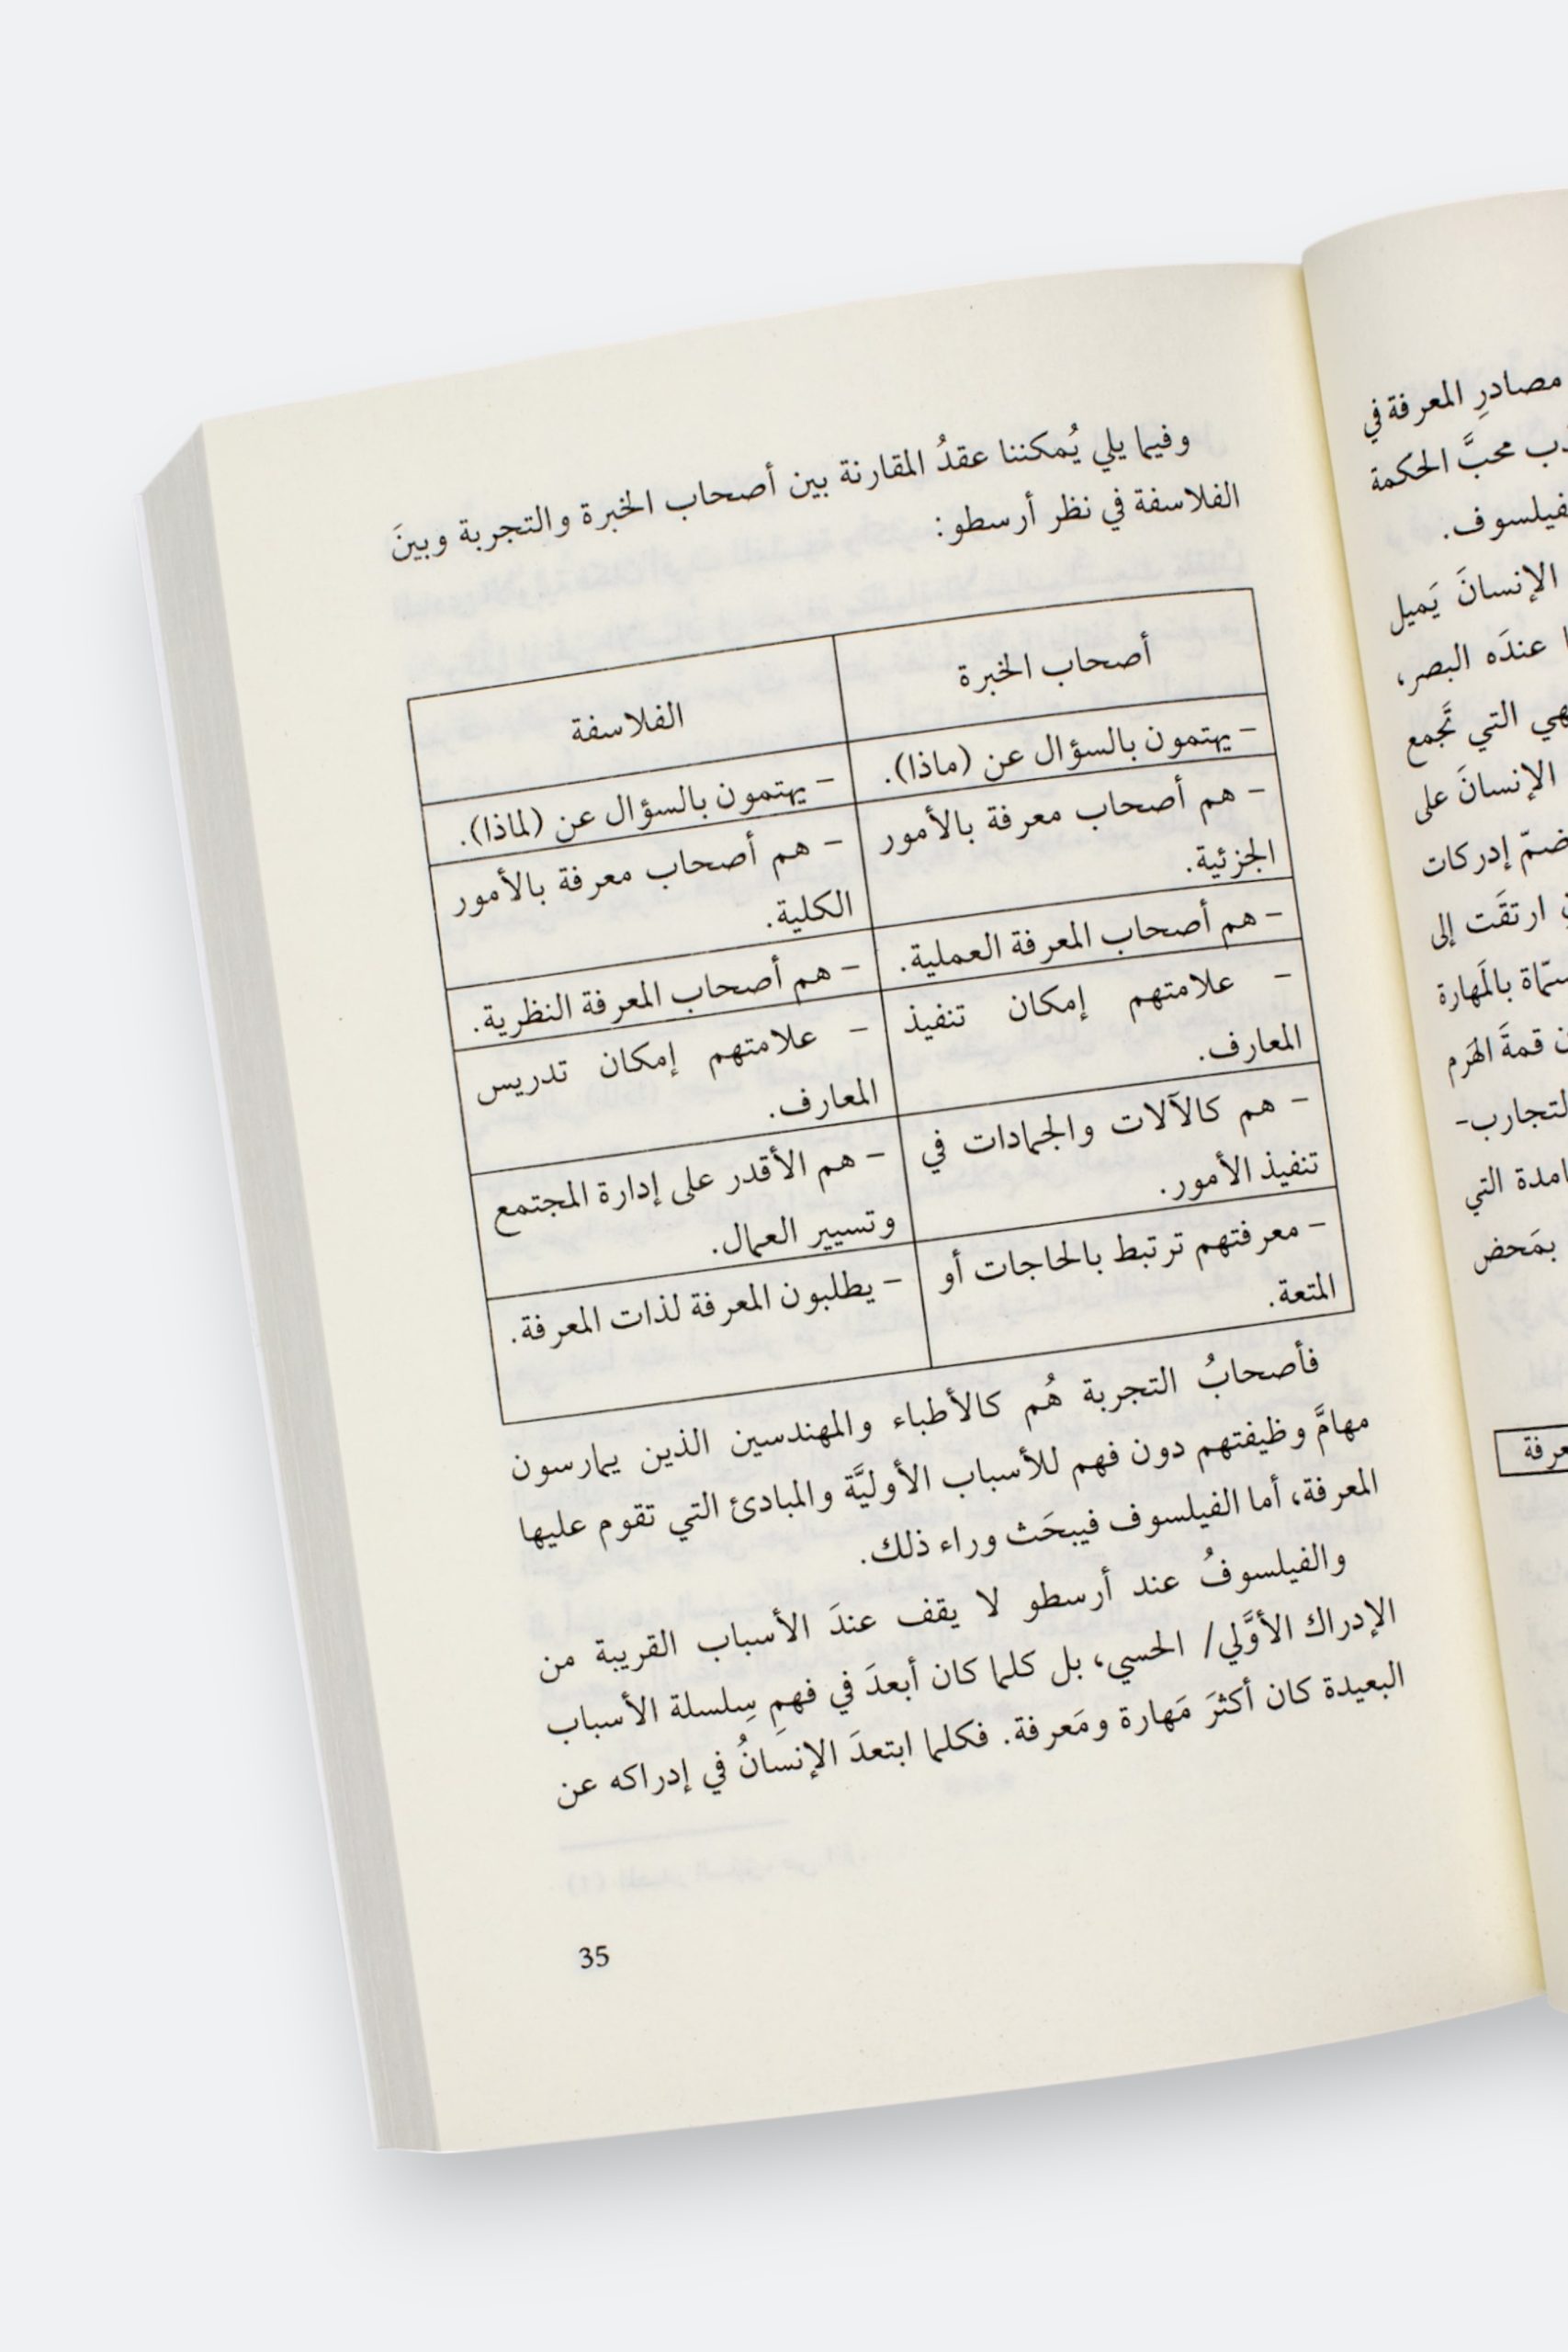 وفيما يلي يُمكننا عقدُ المقارنة بين أصحاب الخبرة والتجربة وبينَ
الفلاسفة في نظر أرسطو:
أصحاب الخبرة
الفلاسفة
- يهتمون بالسؤال عن (ماذا).
- يهتمون بالسؤال عن (لماذا).
- هم أصحاب معرفة بالأمور
الجزئية.
- هم أصحاب معرفة بالأمور
الكلية.
- هم أصحاب المعرفة العملية.
- هم أصحاب المعرفة النظرية.
- علامتهم إمكان تنفيذ
المعارف.
- علامتهم إمكان تدريس
المعارف.
- هم كالآلات والجمادات في
تنفيذ الأمور.
- هم الأقدر على إدارة المجتمع
وتسيير العمال.
- معرفتهم ترتبط بالحاجات أو
المتعة.
- يطلبون المعرفة لذات المعرفة.
فأصحابُ التجربة هُم كالأطباء والمهندسين الذين يمارسون
مهامَّ وظيفتهم دون فهم للأسباب الأوليَّة والمبادئ التي تقوم عليها
المعرفة، أما الفيلسوف فيبحَث وراء ذلك.
والفيلسوفُ عند أرسطو لا يقف عندَ الأسباب القريبة من
الإدراك الأوَّلي/ الحسي، بل كلما كان أبعدَ في فهمِ سِلسلة الأسباب
البعيدة كان أكثرَ مَهارة ومَعرفة. فكلما ابتعدَ الإنسَانُ في إدراكه عن
35
مصادرِ المعرفة في
محبَّ الحكمة
الإنسانَ يَميل
عندَه البصر،
التي تَجمع
الإنسانَ على
إدركات
ارتقَت إلى
بالمَهارة
قمةَ الهَرم
التي
بمَحض